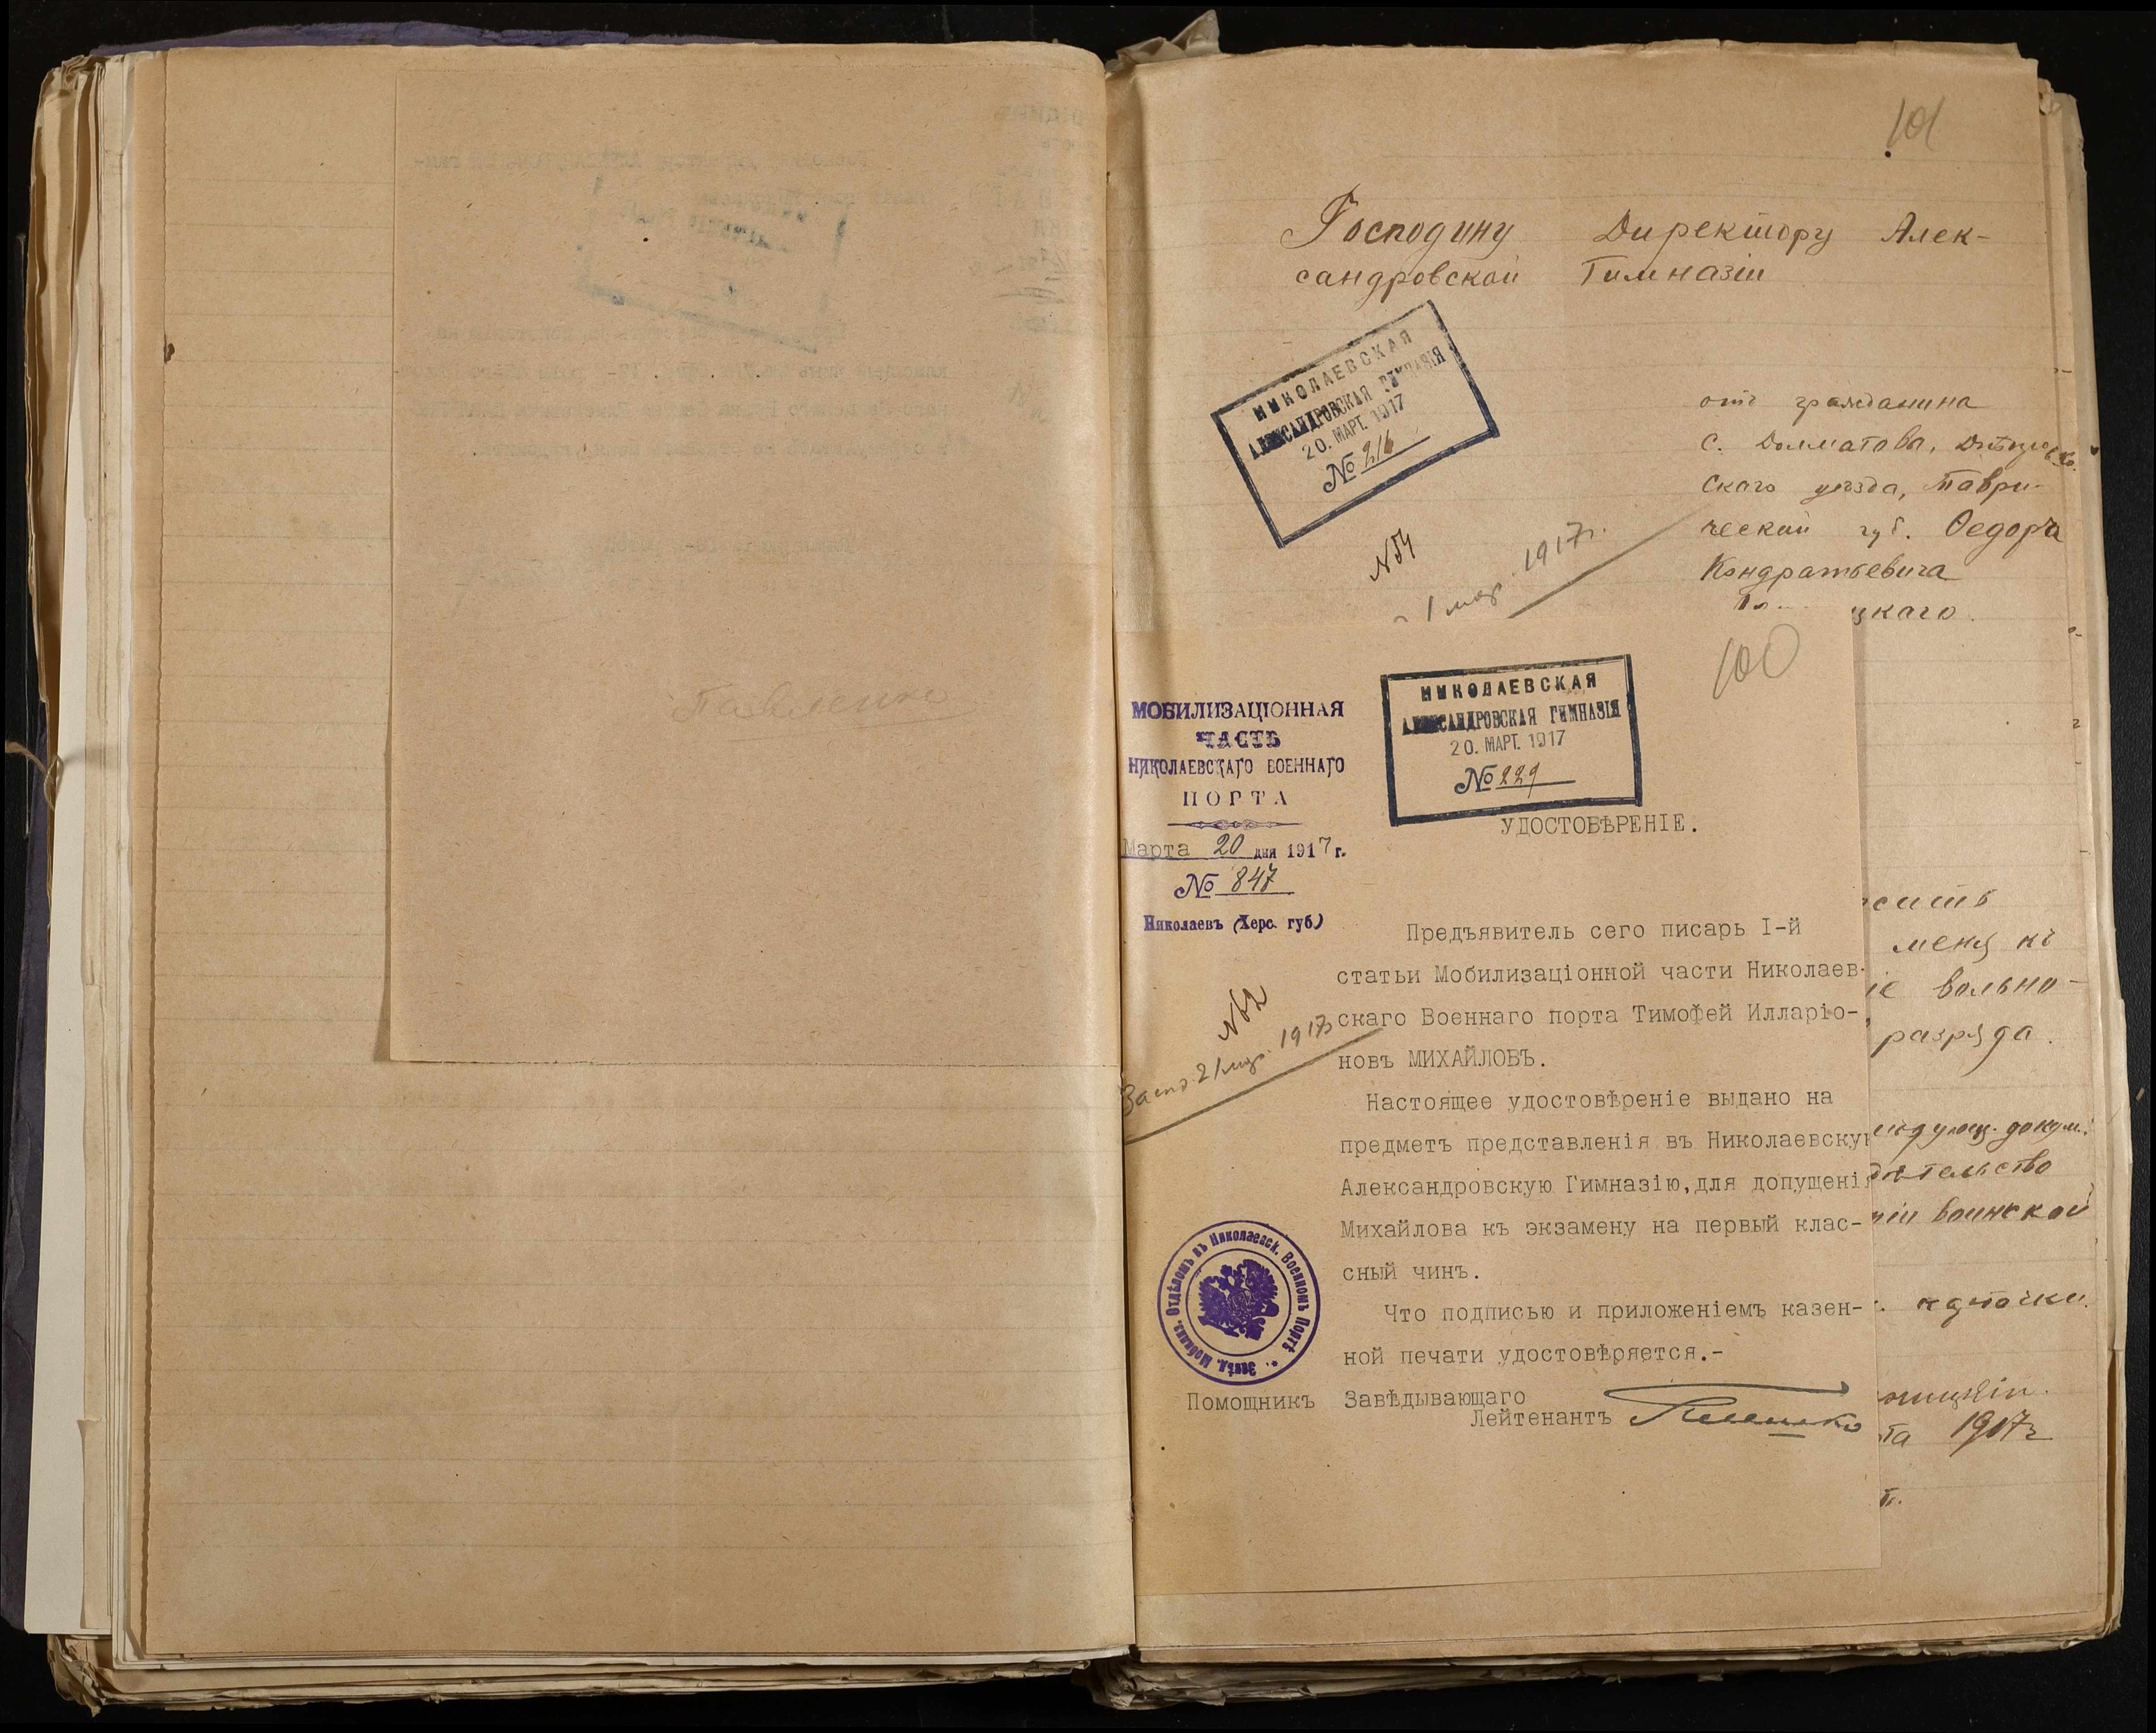 101
Господину Директору Алек-
сандровской Гимназіи
НИКОЛАЕВСКАЯ
АЛЕКСАНДРОВСКАЯ ГИМНАЗІЯ
20. МАРТ. 1917
№ 216
отъ гражданина
с. Долматовы, Днѣпров-
скаго уѣзда, Таври-
ческой губ. Ѳедора
Кондратьевича
цкаго.
№ 54
1 мар. 1917г.
100
МОБИЛИЗАЦІОННАЯ
ЧАСТЬ
НИКОЛАЕВСКАГО ВОЕННАГО
ПОРТА
Марта 20 дня 1917 г.
№ 847
Николаевъ (Херс. губ.)
НИКОЛАЕВСКАЯ
АЛЕКСАНДРОВСКАЯ ГИМНАЗІЯ
20. МАРТ. 1917
№ 229
УДОСТОВѢРЕНІЕ.
Предъявитель сего писарь I-й
статьи Мобилизаціонной части Николаев-
скаго Военнаго порта Тимофей Илларіо-
новъ МИХАЙЛОВЪ.
Настоящее удостовѣреніе выдано на
предметъ представленія въ Николаевскую
Александровскую Гимназію,для допущенія
Михайлова къ экзамену на первый клас-
сный чинъ.
Что подписью и приложеніемъ казен-
ной печати удостовѣряется.-
Помощникъ Завѣдывающаго
Лейтенантъ
№ 62
21 мар. 1917г
Завѣд. Мобилиз. Отдѣломъ въ Николаевск. Военномъ Портѣ
сить
меня къ
іе вольно-
разряда.
дующ. докум.:
дѣтельство
ніи воинской
та 1917г
Павленко